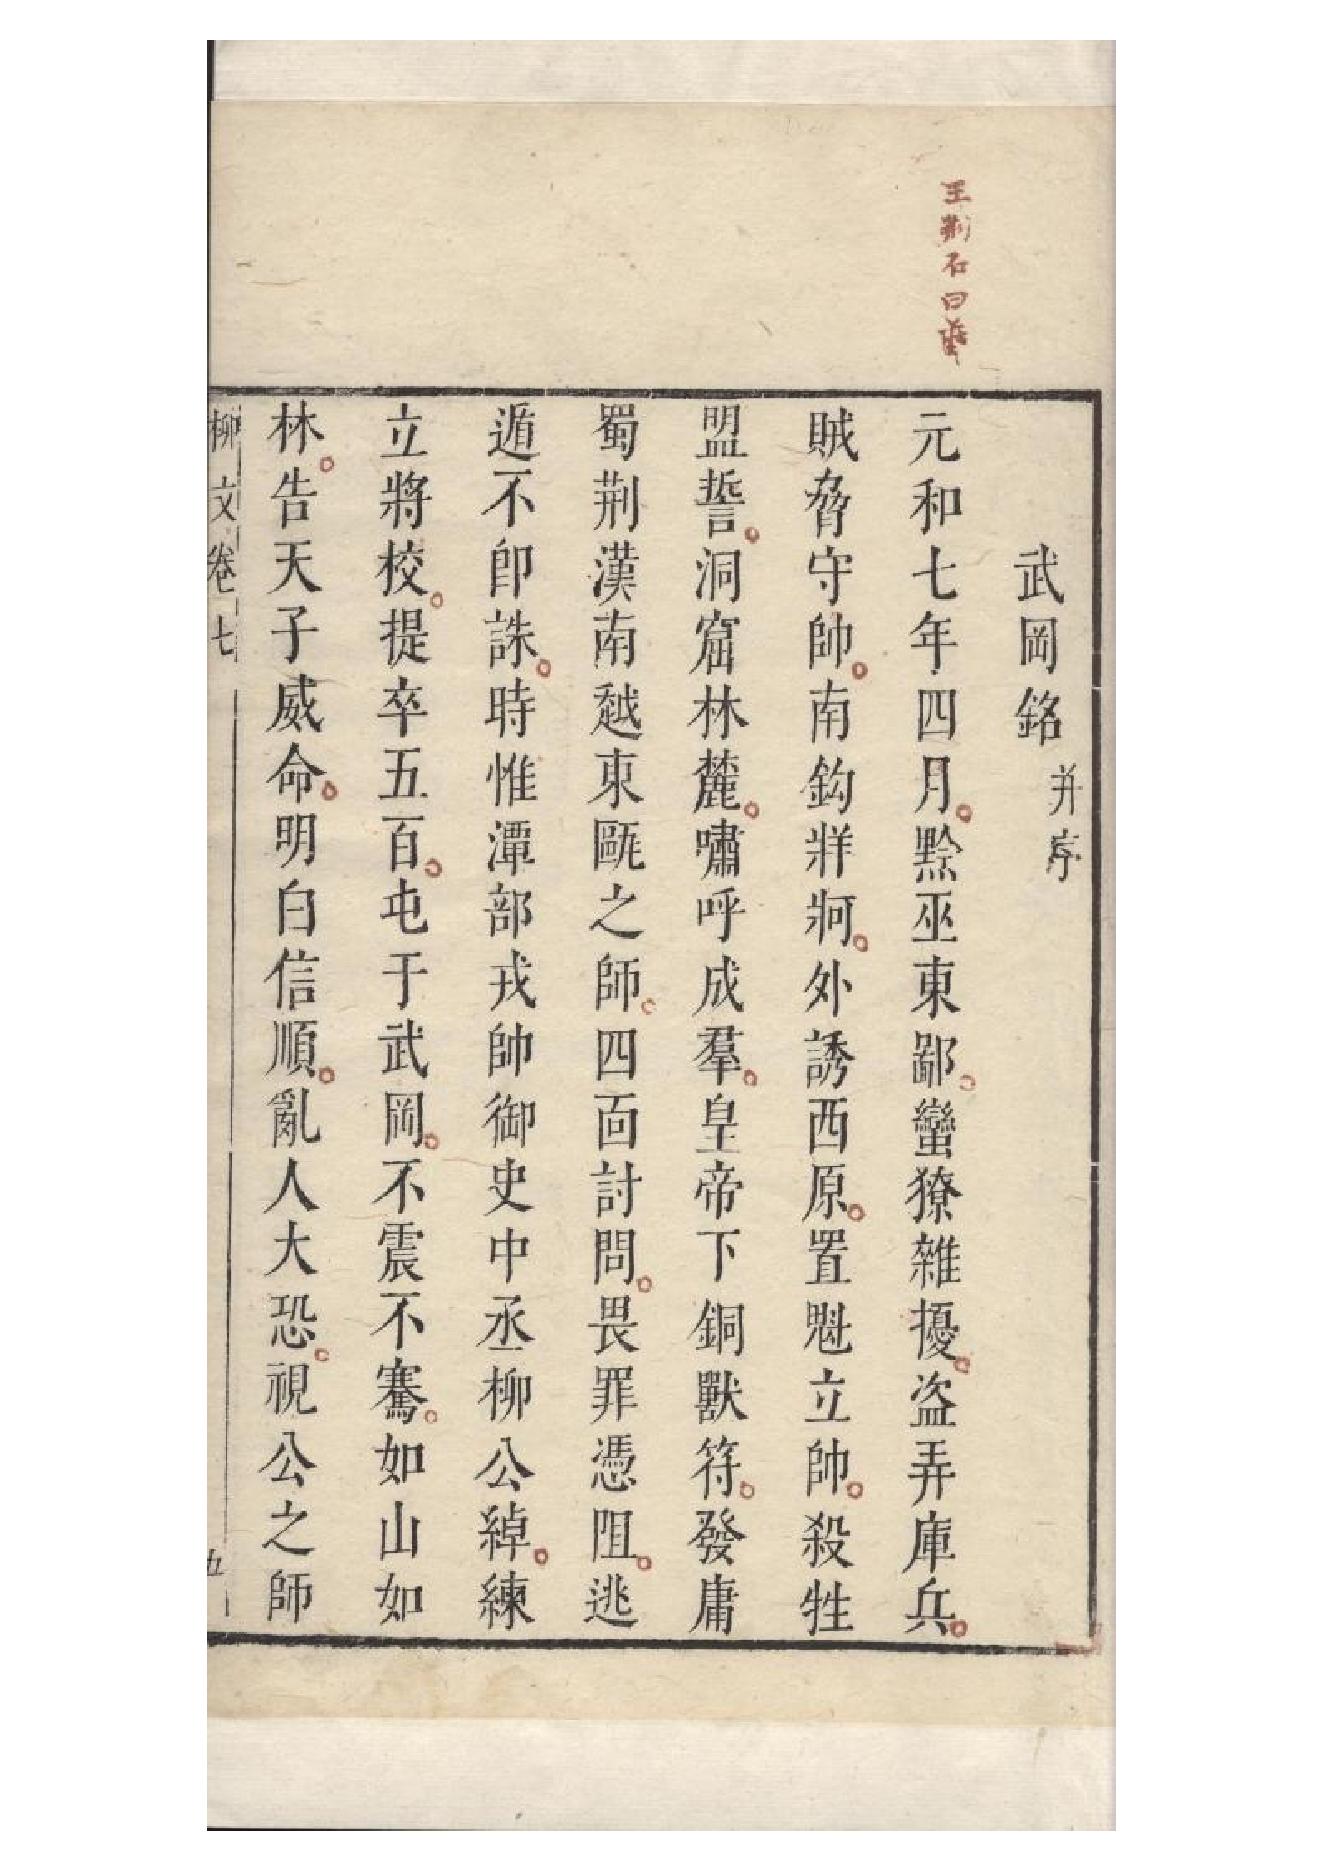 王荊石曰
武岡銘 并序
元和七年四月。黔巫東鄙。蠻獠雜擾。盗弄庫兵。
賊脅守帥。南鈎牂牁。外誘西原。置魁立帥。殺牲
盟誓。洞窟林麓。嘯呼成羣。皇帝下銅獸符。發庸
蜀荆漢南越東甌之師。四面討問。畏罪憑阻。逃
遁不即誅。時惟潭部戎帥御史中丞柳公綽。練
立將校。提卒五百。屯于武岡。不震不騫。如山如
林。告天子威命。明白信順。亂人大恐。視公之師
柳文卷七
五